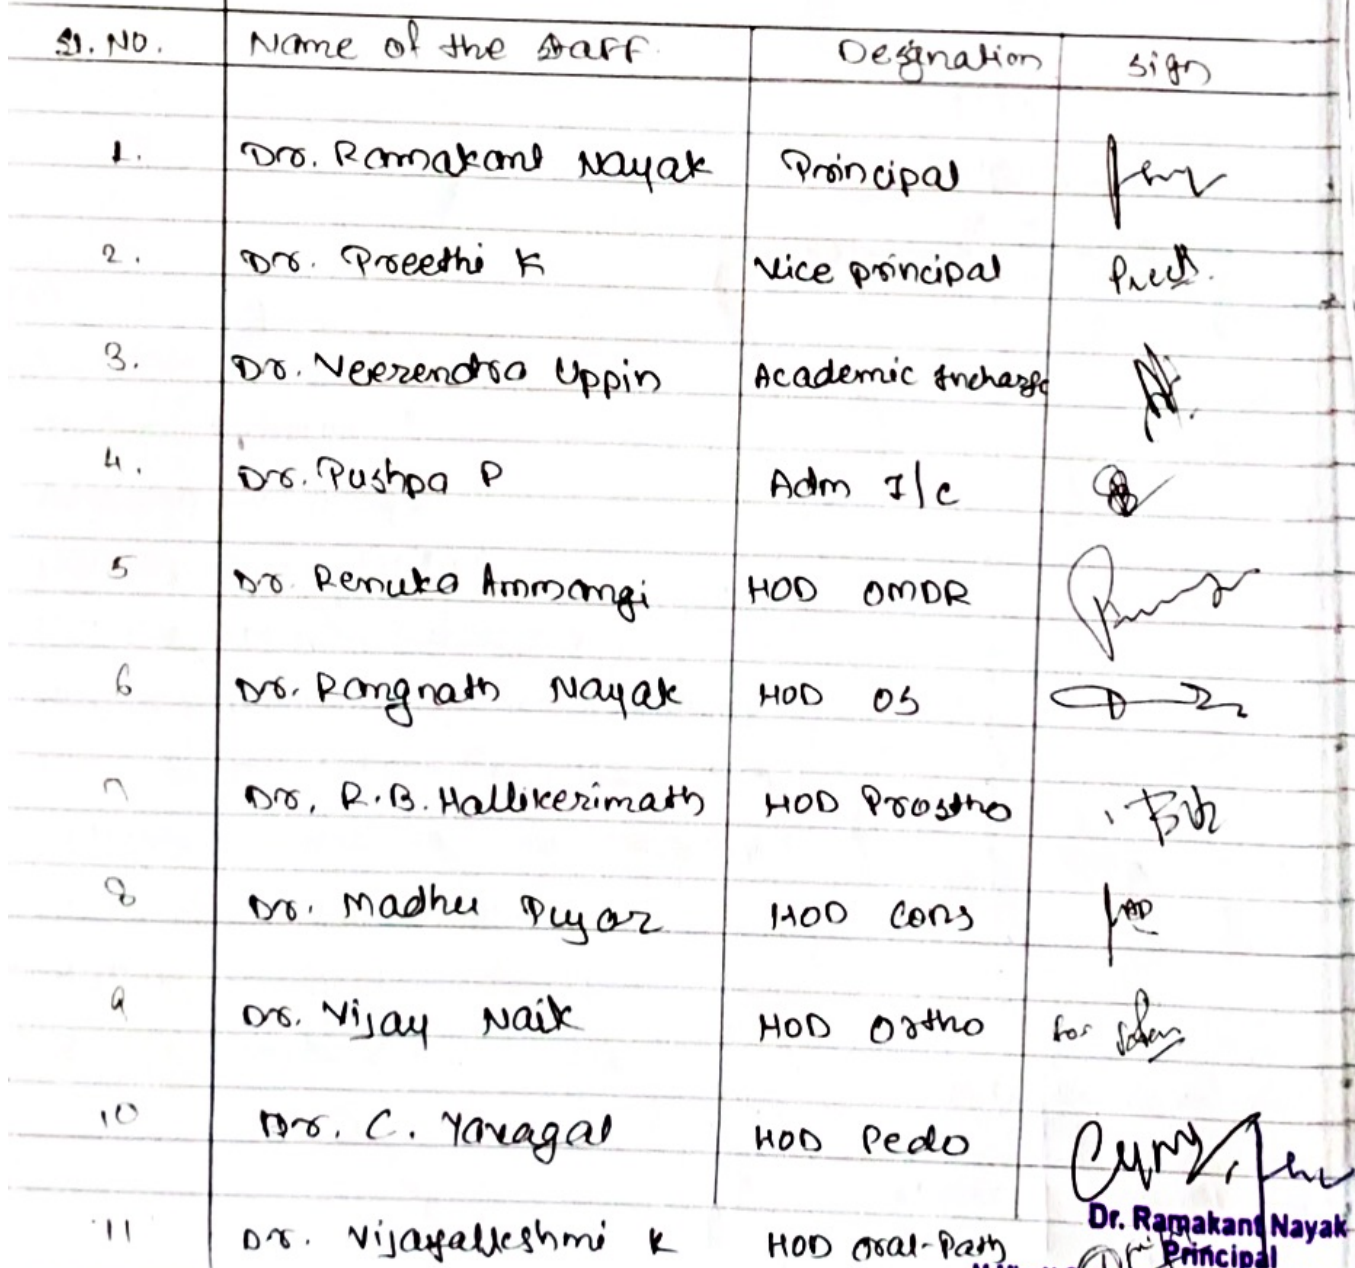 Sl. NO. Name of the Staff. Designation Sign
1. Dr. Ramakant Nayak Principal
2. Dr. Preethi K Vice principal
3. Dr. Veerendra Uppin Academic Incharge
4. Dr. Pushpa P Adm I/c
5 Dr. Renuka Ammangi HOD OMDR
6 Dr. Rangnath Nayak HOD OS
7 Dr. R.B. Hallikerimath HOD Prostho
8 Dr. Madhu Pujar HOD Cons
9 Dr. Vijay Naik HOD Ortho for
10 Dr. C. Yavagal HOD Pedo
Dr. Ramakant Nayak
Principal
11 Dr. Vijayalkeshmi K HOD Oral-Path